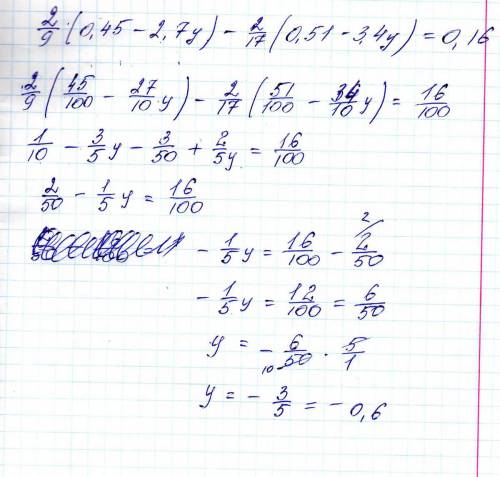 2/9 (0,45 - 2,7y) - 2/17 (0,51 - 3,4y) = 0,16
2/9 (45/100 - 27/10 y) - 2/17 (51/100 - 34/10 y) = 16/100
1/10 - 3/5 y - 3/50 + 2/5 y = 16/100
2/50 - 1/5 y = 16/100
- 1/5 y = 16/100 - 2/50 2/
- 1/5 y = 12/100 = 6/50
y = - 6/50 · 5/1 10
y = - 3/5 = - 0,6